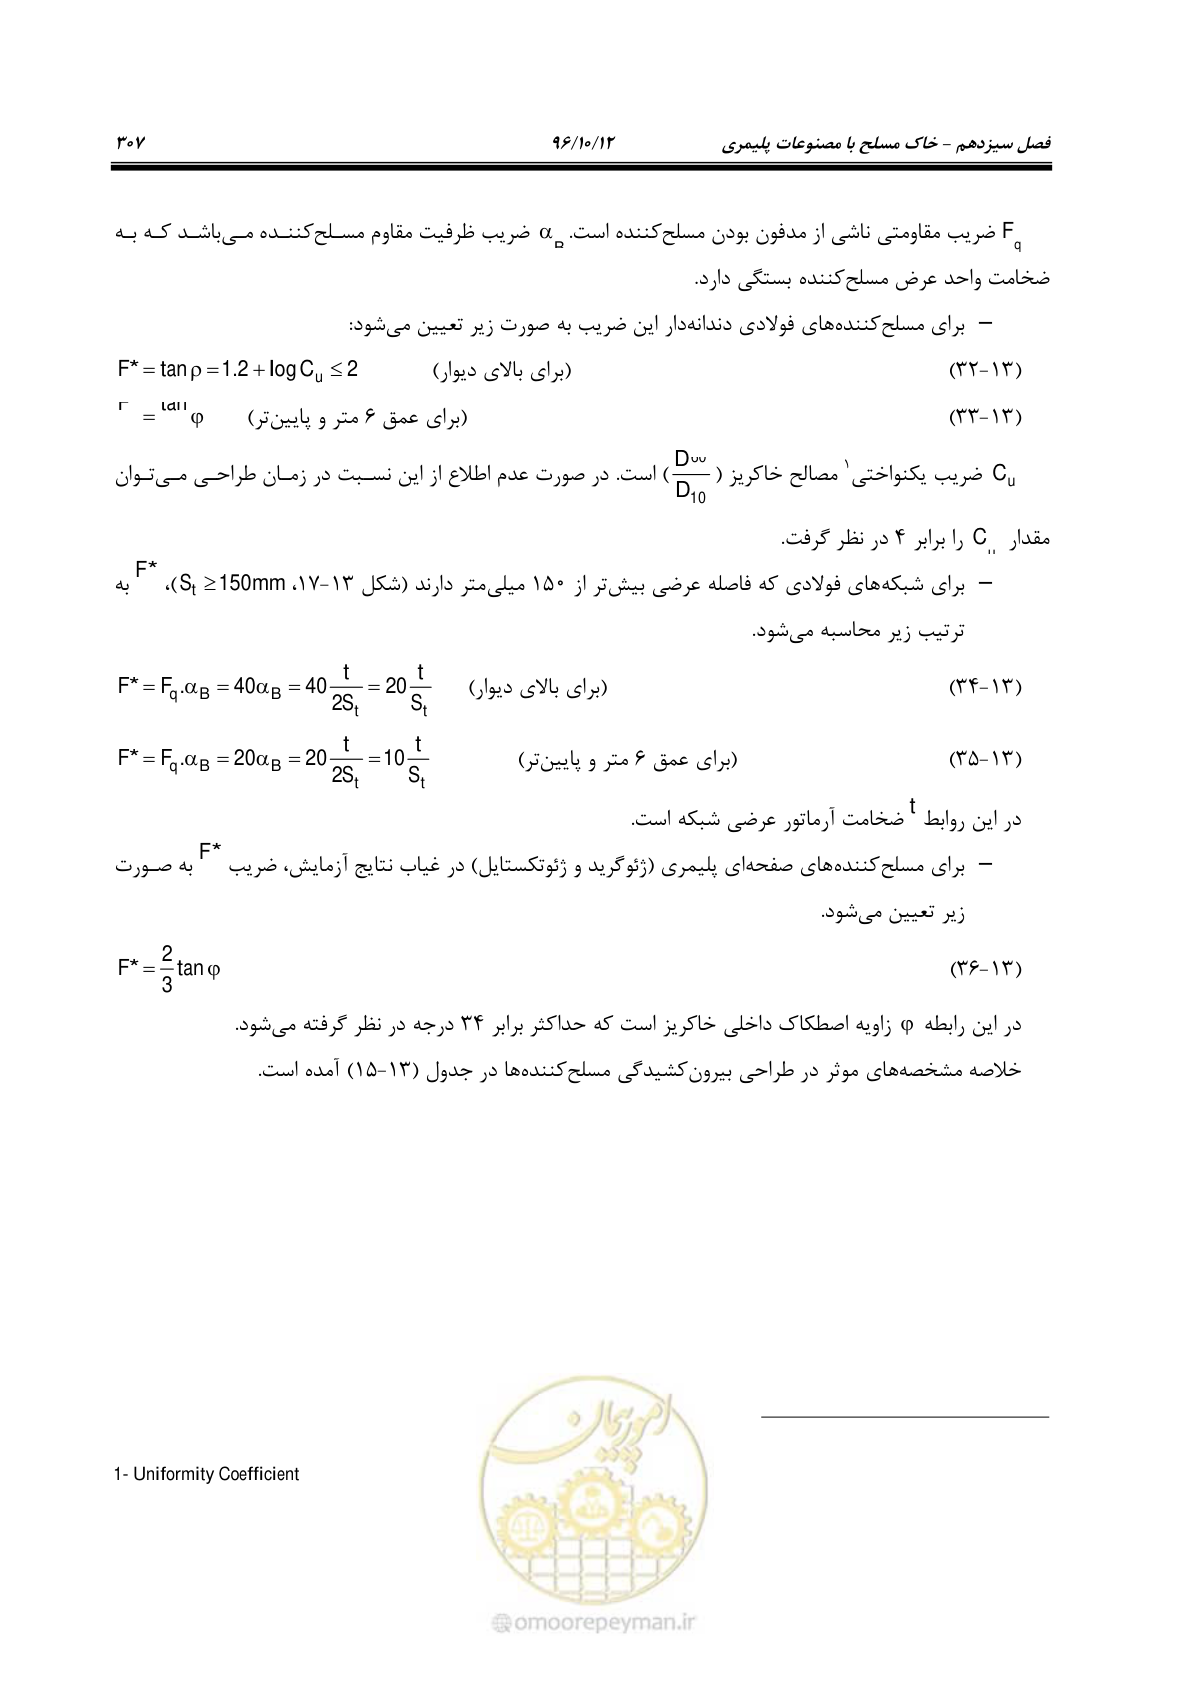 فصل سیزدهم – خاک مسلح با مصنوعات پلیمری ۹۶/۱۰/۱۲ ۳۰۷
F_q ضریب مقاومتی ناشی از مدفون بودن مسلح‌کننده است. α_B ضریب ظرفیت مقاوم مسلح‌کننده می‌باشد که به
ضخامت واحد عرض مسلح‌کننده بستگی دارد.
– برای مسلح‌کننده‌های فولادی دندانه‌دار این ضریب به صورت زیر تعیین می‌شود:
(۱۳-۳۲) (برای بالای دیوار) F* = tan ρ = 1.2 + log C_u ≤ 2
(۱۳-۳۳) (برای عمق ۶ متر و پایین‌تر) F = tan φ
C_u ضریب یکنواختی۱ مصالح خاکریز (D/D_10) است. در صورت عدم اطلاع از این نسبت در زمان طراحی می‌توان
مقدار C_u را برابر ۴ در نظر گرفت.
– برای شبکه‌های فولادی که فاصله عرضی بیش‌تر از ۱۵۰ میلی‌متر دارند (شکل ۱۳-۱۷، S_t ≥ 150mm)، F* به
ترتیب زیر محاسبه می‌شود.
(۱۳-۳۴) (برای بالای دیوار) F* = F_q.α_B = 40α_B = 40 t/2S_t = 20 t/S_t
(۱۳-۳۵) (برای عمق ۶ متر و پایین‌تر) F* = F_q.α_B = 20α_B = 20 t/2S_t = 10 t/S_t
در این روابط t ضخامت آرماتور عرضی شبکه است.
– برای مسلح‌کننده‌های صفحه‌ای پلیمری (ژئوگرید و ژئوتکستایل) در غیاب نتایج آزمایش، ضریب F* به صورت
زیر تعیین می‌شود.
(۱۳-۳۶) F* = 2/3 tan φ
در این رابطه φ زاویه اصطکاک داخلی خاکریز است که حداکثر برابر ۳۴ درجه در نظر گرفته می‌شود.
خلاصه مشخصه‌های موثر در طراحی بیرون‌کشیدگی مسلح‌کننده‌ها در جدول (۱۳-۱۵) آمده است.
1- Uniformity Coefficient
امور پیمان
@omoorepeyman.ir